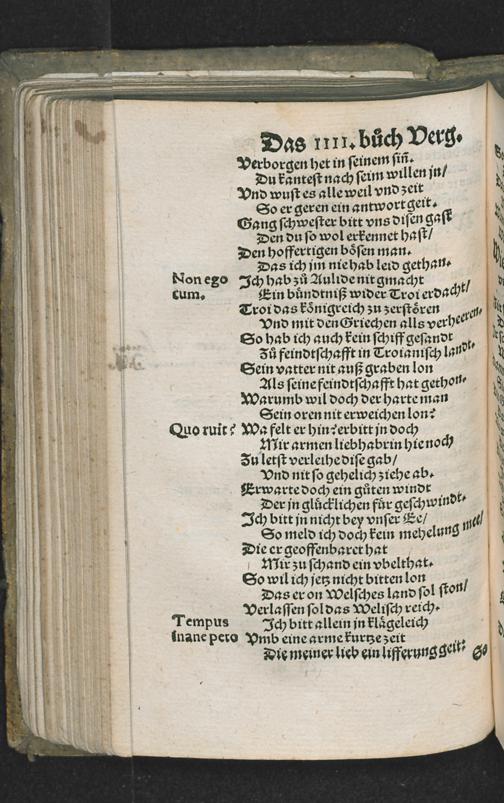 Das IIII. bůch Verg.
Verborgen het in seinem siñ.
Du kantest nach seim willen jn/
Vnd wust es alle weil vnd zeit
So er geren ein antwort geit.
Gang schwester bitt vns disen gast
Den du so wol erkennet hast/
Den hoffertigen bösen man.
Das ich jm nie hab leid gethan.
Non ego Ich hab zů Aulide nit gmacht
cum. Ein bündtniß wider Troi erdacht/
Troi das königreich zu zerstören
Vnd mit den Griechen alls verheeren.
So hab ich auch kein schiff gesandt
Zů feindtschafft in Troianisch landt.
Sein vatter nit auß graben lon
Als seine feindtschafft hat gethon.
Warumb wil doch der harte man
Sein oren nit erweichen lon?
Quo ruit? Wa felt er hin? erbitt jn doch
Mir armen liebhabrin hie noch
Zu letst verleihe dise gab/
Vnd nit so gehelich ziehe ab.
Erwarte doch ein gůten windt
Der jn glücklichen für geschwindt.
Ich bitt jn nicht bey vnser Ee/
So meld ich doch kein mehelung mee/
Die er geoffenbaret hat
Mir zu schand ein vbelthat.
So wil ich jetz nicht bitten lon
Das er on Welsches land sol ston/
Verlassen sol das Welisch reich.
Tempus Ich bitt allein jn klägeleich
Inane peto Vmb eine arme kurtze zeit
Die meiner lieb ein lifferung geit:
So